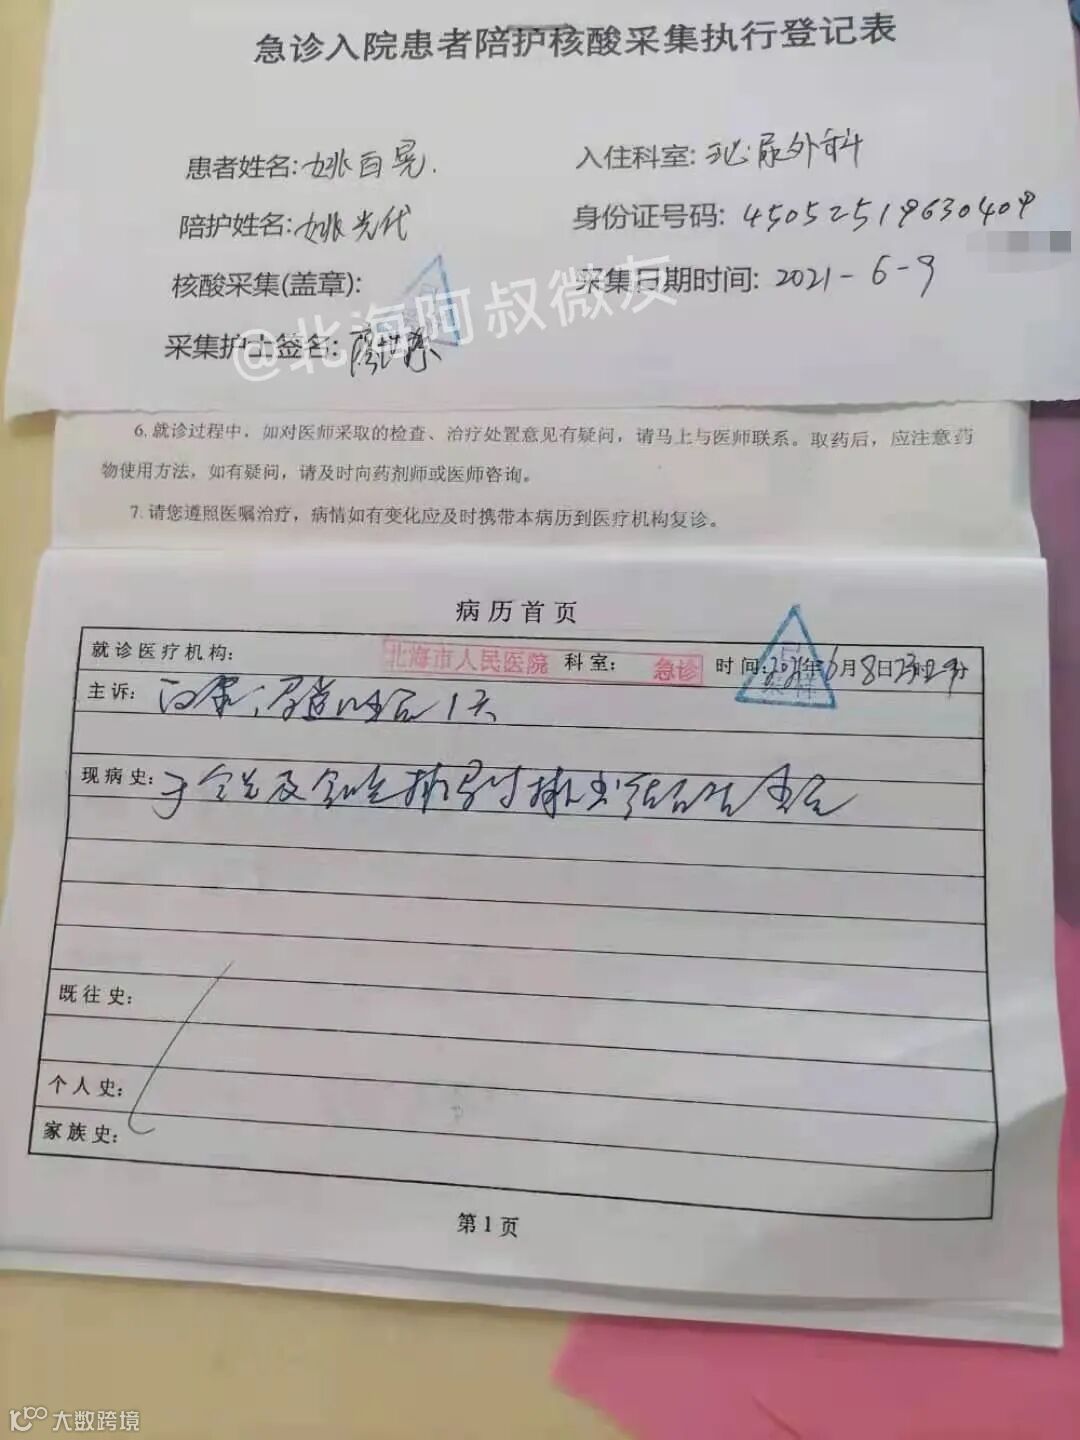 急诊入院患者陪护核酸采集执行登记表
患者姓名:姚自晃. 入住科室:泌尿外科
陪护姓名:姚光代 身份证号码:45052519630409
核酸采集(盖章): 采集日期时间:2021-6-9
采集护士签名:
@北海阿叔微友
6.就诊过程中，如对医师采取的检查、治疗处置意见有疑问，请马上与医师联系。取药后，应注意药
物使用方法，如有疑问，请及时向药剂师或医师咨询。
7.请您遵照医嘱治疗，病情如有变化应及时携带本病历到医疗机构复诊。
病历首页
就诊医疗机构: 北海市人民医院 科室: 急诊 时间:2021年6月8日23时29分
主诉: 1天
现病史:
既往史:
个人史:
家族史:
第1页
大数跨境